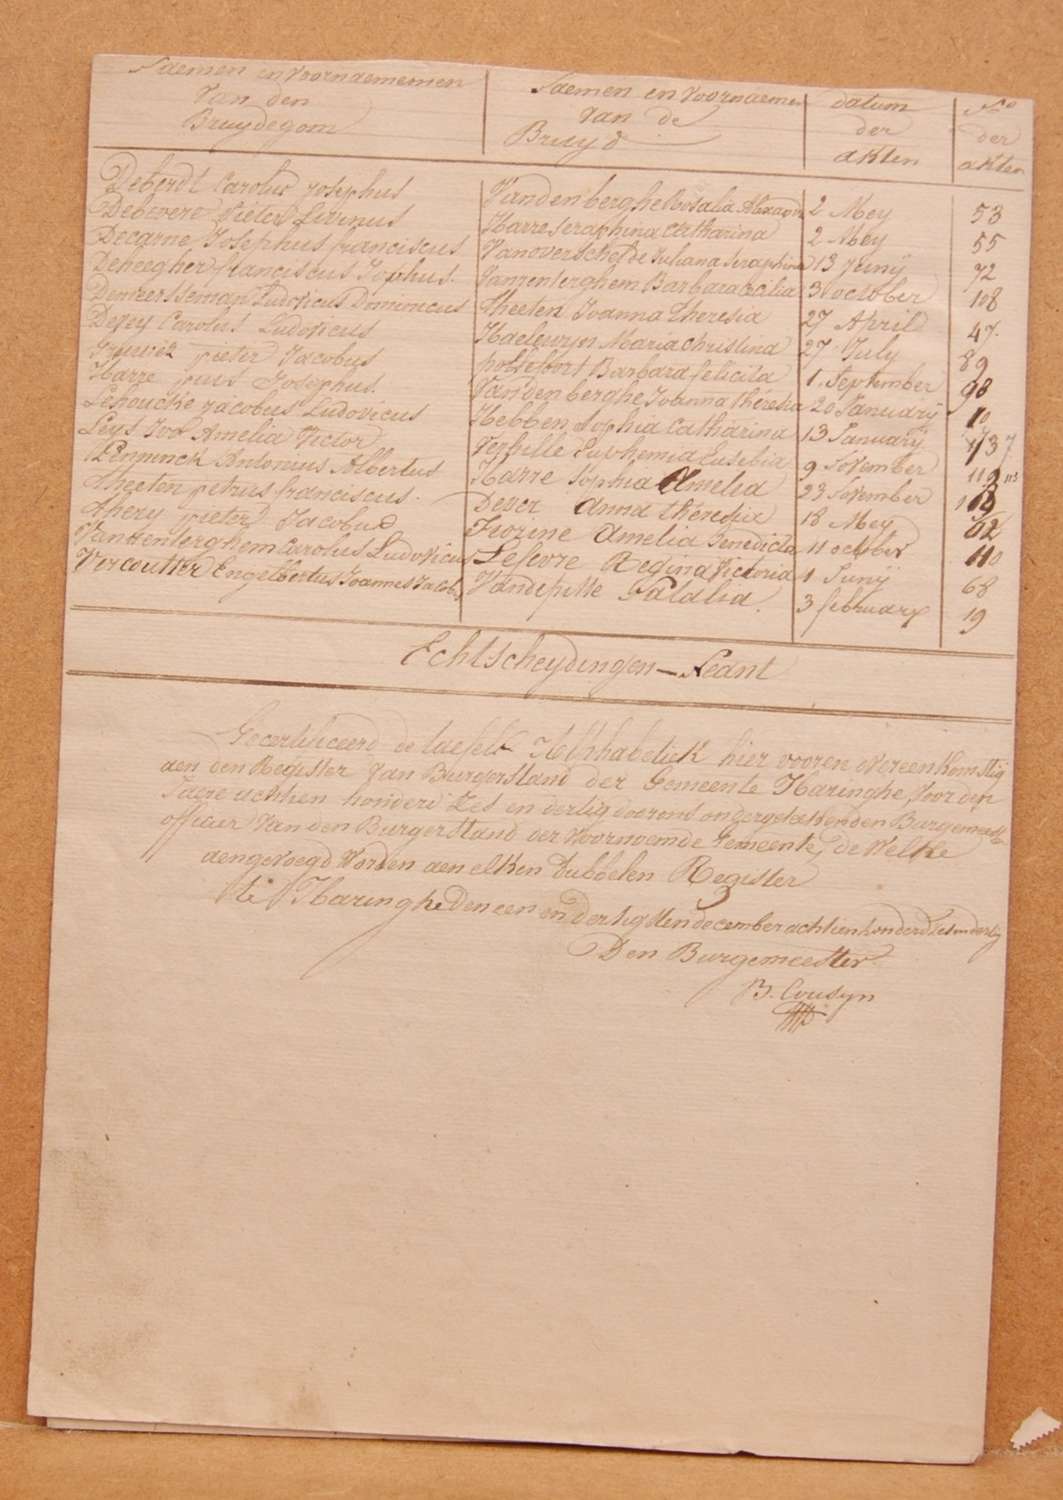 Naemen en voornaememen Naemen en voornaemen datum No
van den van de der der
Bruydegom Bruyd akten akten
Deberdt Carolus Josephus Vandenberghe Rosala 2 Mey 53
Debevere Pieter Livinus Harre Seraphina Catharina 2 Mey 55
Decarne Josephus franciscus Vanoverschelde Juliana Seraphina 13 Junij 72
Deheegher franciscus Jophus Vanzenterghem Barbara Cecilia 30 october 108
Deneersseman Ludovicus Dominicus Theeten Joanna Theresia 27 April 47
Devey Carolus Ludovicus Haelewyn Maria Christina 27 July 89
pieter Jacobus Barbara felicita 1 September 98
Harre pius Josephus Vandenberghe Joanna Théresia 20 January 10
Lehoucke Jacobus Ludovicus Hebben Sophia Catharina 13 January 7
Leys Ivo Amelia Victor Verhille Euphemia Eusebia 9 November
Penninck Antonius Albertus Harre Sophia Amelia 23 November
Theeten petrus franciscus Dever anna théresia 18 Mey 62
Thery pieter Jacobus Amelia Benedicta 11 october 110
Vanttenterghem Carolus Ludovicus Lefevre Regina Victoria 1 Junij 68
Vercoutter Engelbertus Joannes Jacobs Vandepitte Natalia 3 february 19
Echtscheydingen – Neant
Gecertificeerd de taefels Alphabetiek hier vooren overeenkomstig
aen den Register van Burgerstand der Gemeente Haringhe, voor den
Jaere achtien honderd Zes en dertig door ons ondergeteekenden Burgemeester
officier van den Burgerstand der voornoemde Gemeente, de welke
aengevoegd worden aen elken dubbelen Register
te Haringhe Den een en dertigsten december achtien honderd Zes en dertig
Den Burgemeester
B. Cousyn